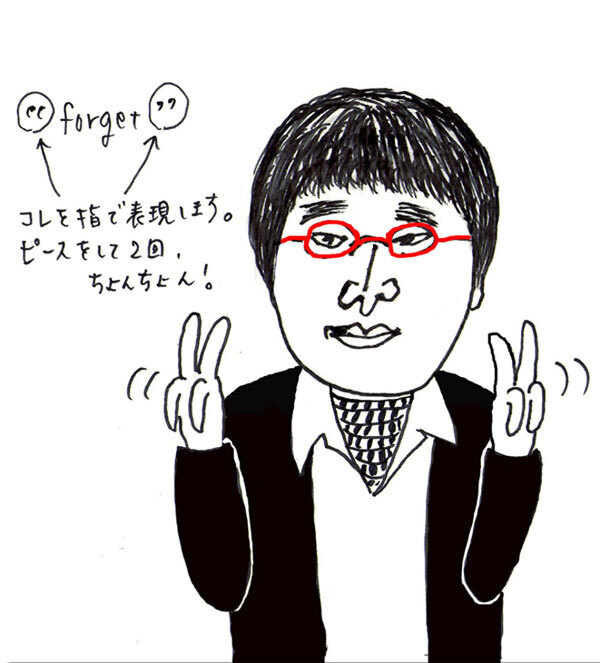 “forget”
コレを指で表現します。
ピースをして2回、
ちょんちょん!